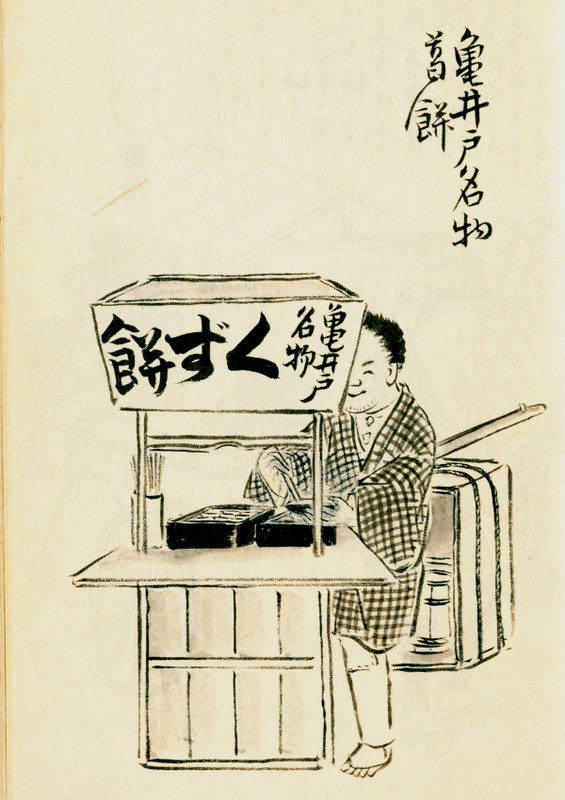 亀井戸名物
葛餅
亀井戸
名物
くず餅